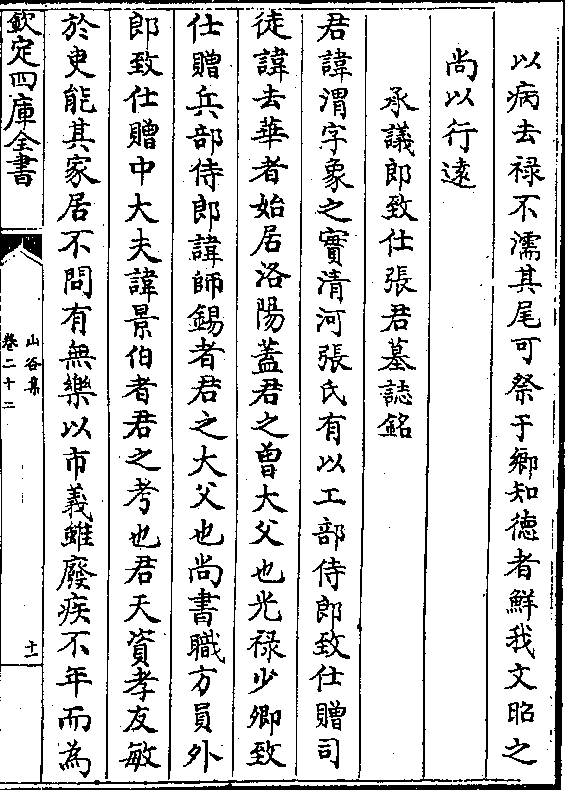 以病去禄不濡其尾可祭于鄉知德者鮮我文昭之
尚以行逺
承議郎致仕張君墓誌銘
君諱渭字象之實清河張氏有以工部侍郎致仕贈司
徒諱去華者始居洛陽蓋君之曾大父也光禄少卿致
仕贈兵部侍郎諱師錫者君之大父也尚書職方員外
郎致仕贈中大夫諱景伯者君之考也君天資孝友敏
於吏能其家居不問有無樂以市義雖廢疾不年而為
欽定四庫全書
山谷集
卷二十二
十一